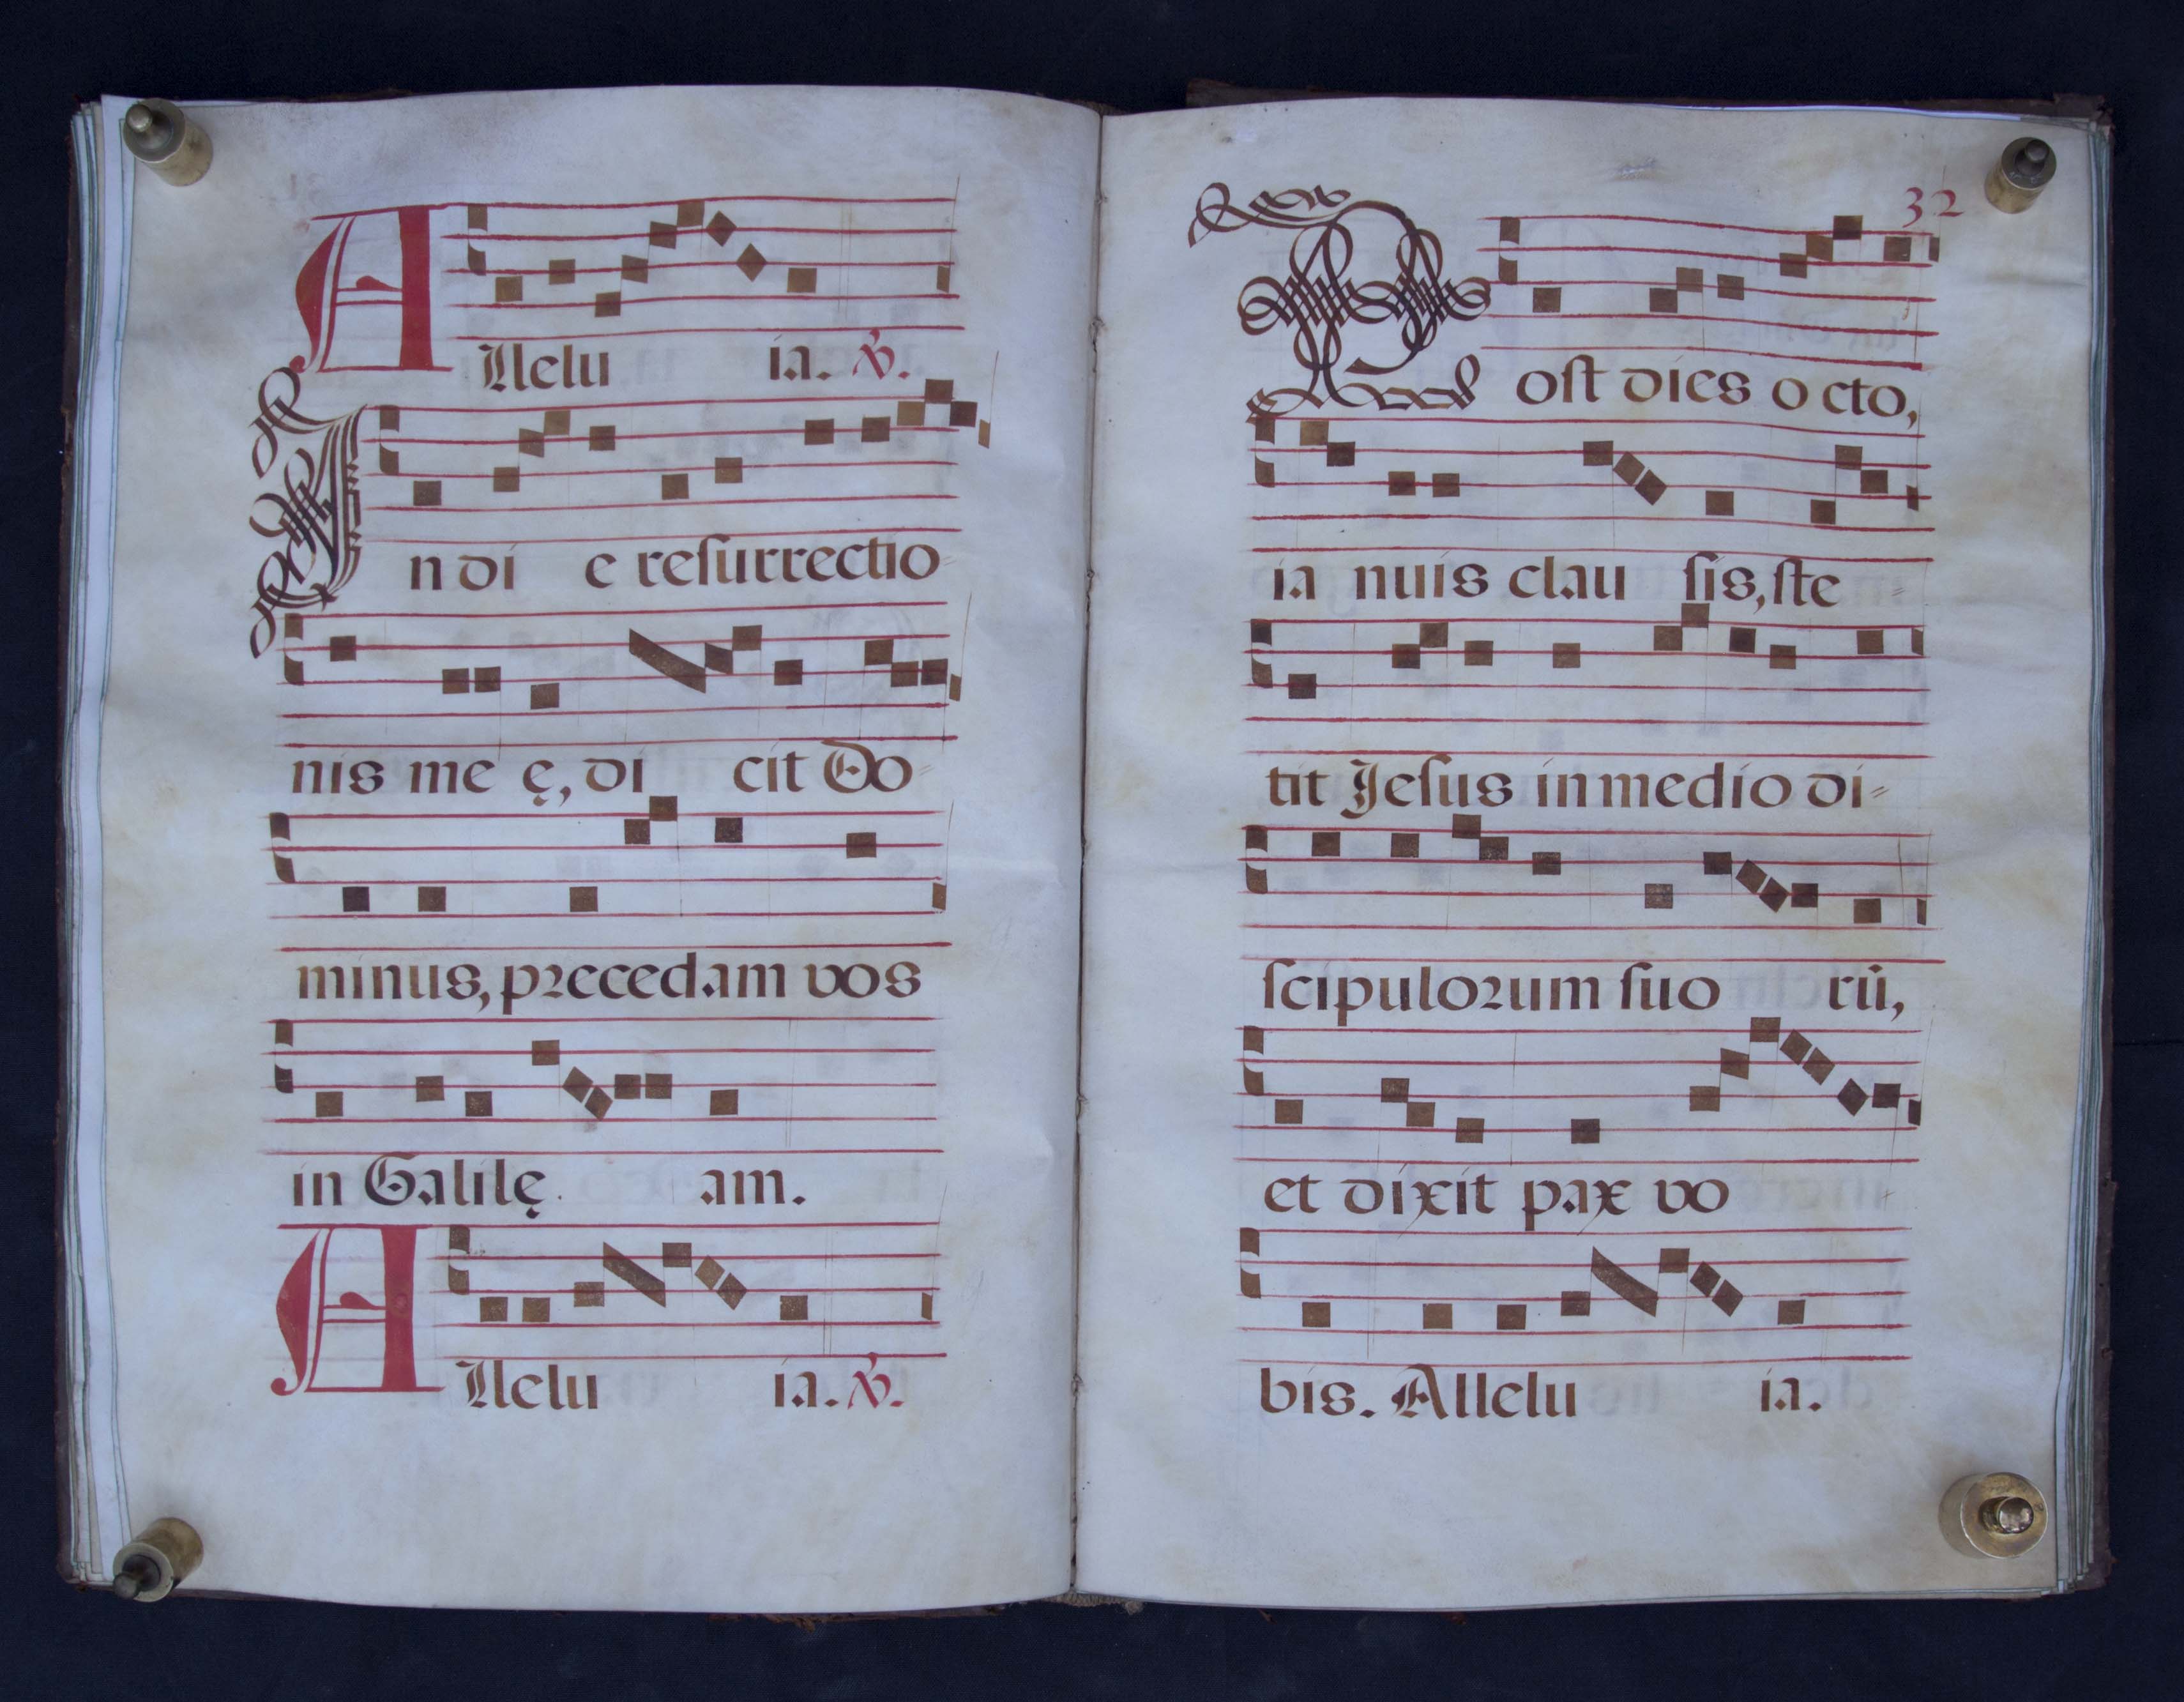 Allelu ia. ℣.
In di e resurrectio=
nis me ę, di cit Do=
minus, precedam vos
in Galilę am.
Allelu ia. ℣.
32
Post dies o cto,
ia nuis clau sis, ste=
tit Jesus in medio di=
scipulorum suo rū,
et dixit pax vo
bis. Allelu ia.